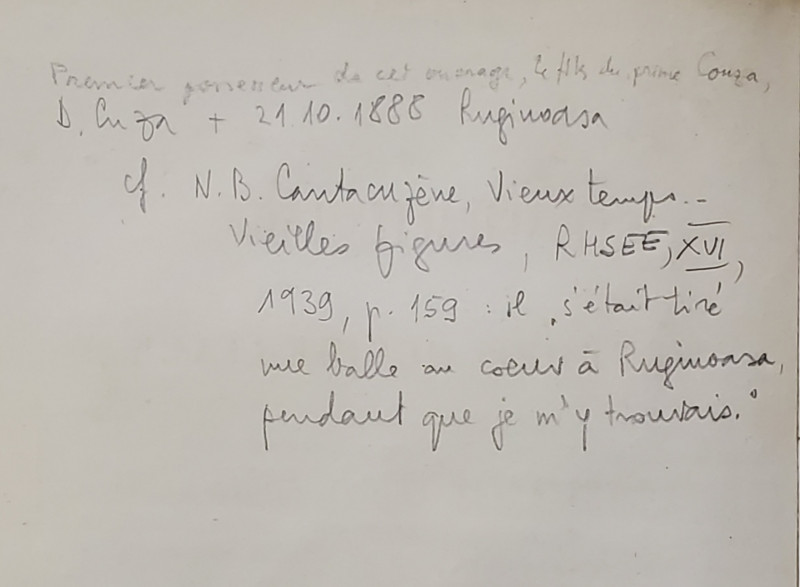 Premier possesseur de cet ouvrage, le fils du prince Couza,
D. Cuza + 21.10.1888 Ruginoasa
cf. N. B. Cantacuzène, Vieux temps.-
Vieilles figures, RHSEE, XVI,
1939, p. 159 : il „s'était tiré
une balle au coeur à Ruginoasa,
pendant que je m'y trouvais."